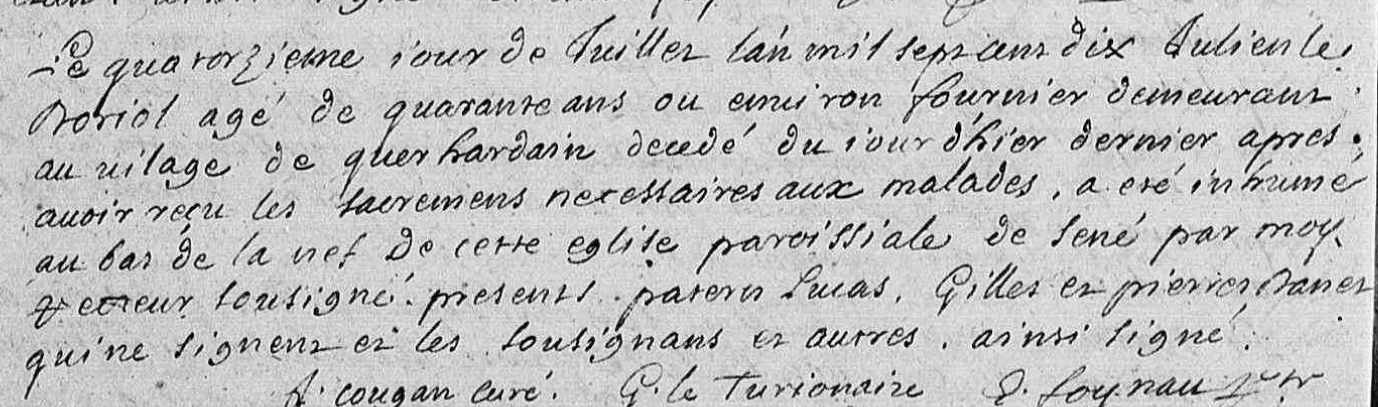 Le quatorzieme iour de Iuillet l'an mil sept cent dix Iulien le
Doriol agé de quarante ans ou enuiron fournier demeurant
au uilage de querhardain decedé du iour d'hier dernier apres
auoir reçu les sacremens necessaires aux malades, a eté inhumé
au bas de la nef de cette eglise paroissiale de sené par moy
recteur sousigné. presents patern Lucas, Gilles et pierre Danet
qui ne signent et les sousignans et autres. ainsi signé.
cougan curé. G. le Turionaire